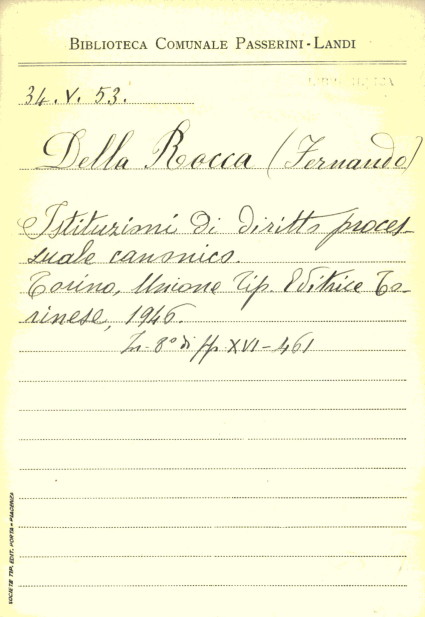 BIBLIOTECA COMUNALE PASSERINI-LANDI
34. V. 53.
Della Rocca (Fernando)
Istituzioni di diritto proces-
suale canonico.
Torino, Unione Tip. Editrice To-
rinese, 1946.
In-8° di pp. XVI-461
SOCIETÀ TIP. EDIT. PORTA - PIACENZA